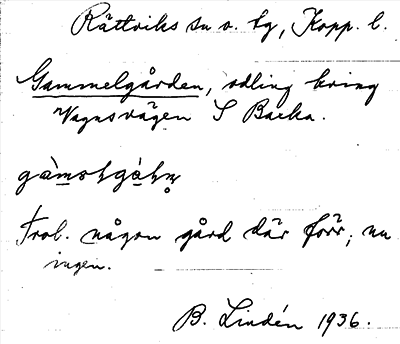 Rättviks sn o. tg, Kopp. l.
Gammelgården, odling kring
Vagnsvägen S Backa.
Trol. någon gård där förr; nu
ingen.
B. Lindén 1936.